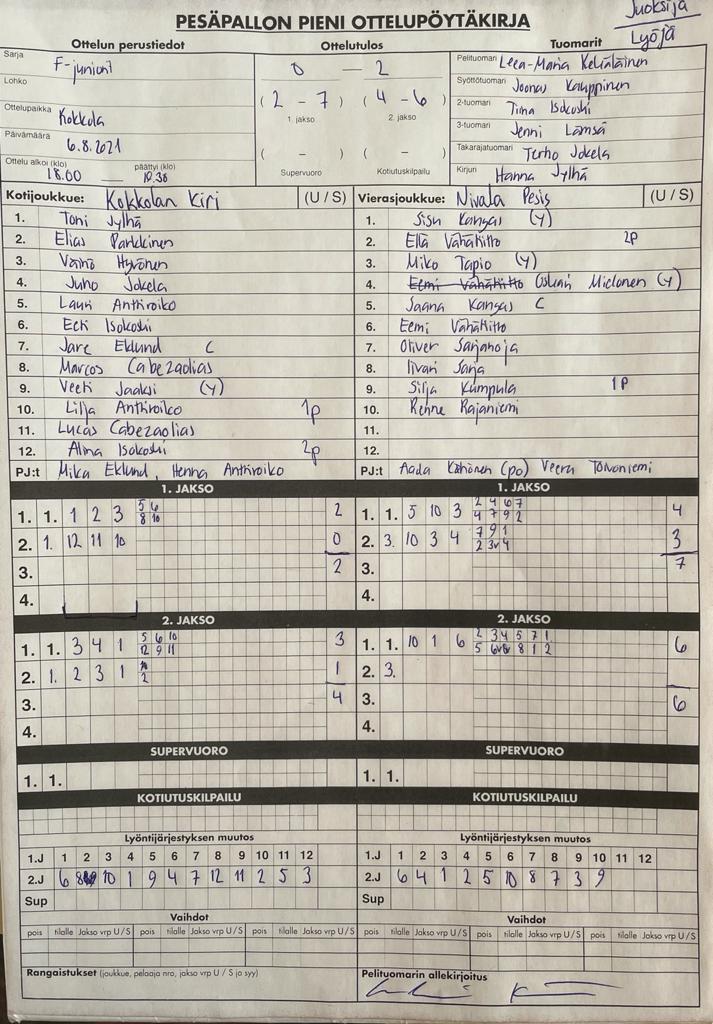 PESÄPALLON PIENI OTTELUPÖYTÄKIRJA
Juoksija
Lyöjä
Ottelun perustiedot
Sarja F-juniorit
Lohko
Ottelupaikka Kokkola
Päivämäärä 6.8.2021
Ottelu alkoi (klo) 18.00 — päättyi (klo) 19.36
Ottelutulos
0 — 2
( 2 – 7 ) ( 4 – 6 )
1. jakso 2. jakso
( – ) ( – )
Supervuoro Kotiutuskilpailu
Tuomarit
Pelituomari Leea-Maria
Syöttötuomari Joonas Kauppinen
2-tuomari Tiina Isokoski
3-tuomari Jenni Lämsä
Takarajatuomari Terho Jokela
Kirjuri Hanna Jylhä
Kotijoukkue: Kokkolan Kiri (U / S)
1. Toni Jylhä
2. Elias Parkkinen
3. Väinö Hyvönen
4. Juho Jokela
5. Lauri Anthroiko
6. Eeti Isokoski
7. Jare Eklund C
8. Marcos Cabezaolias
9. Veeti Jaaksi (Y)
10. Lilja Anthroiko 1p
11. Lucas Cabezaolias
12. Alma Isokoski 2p
PJ:t Mika Eklund, Henna Anthroiko
Vierasjoukkue: Nivala Pesis (U / S)
1. Sisu Kangas (Y)
2. Ella Vähähitto 2P
3. Miko Tapio (Y)
4. Eemi Vähähitto Oskari Mielonen (Y)
5. Jaana Kangas C
6. Eemi Vähähitto
7. Oliver Sarjanoja
8. Iivari Sarja
9. Silja Kumpula 1P
10. Rehne Rajaniemi
11.
12.
PJ:t Aada (po) Veera Toivoniemi
1. JAKSO
1. 1. 1 2 3 5 6 2
8 10
2. 1. 12 11 10 0
3. 2
4.
1. JAKSO
1. 1. 5 10 3 2 4 6 7 4
4 7 9 2
2. 3. 10 3 4 7 9 1 3
2 3v 4
3. 7
4.
2. JAKSO
1. 1. 3 4 1 5 6 10 3
12 9 11
2. 1. 2 3 1 1
2
3. 4
4.
2. JAKSO
1. 1. 10 1 6 2 3 4 5 7 1 6
5 8 1 2
2. 3.
3. 6
4.
SUPERVUORO
1. 1.
SUPERVUORO
1. 1.
KOTIUTUSKILPAILU
KOTIUTUSKILPAILU
Lyöntijärjestyksen muutos
1.J 1 2 3 4 5 6 7 8 9 10 11 12
2.J 6 8 10 1 9 4 7 12 11 2 5 3
Sup
Lyöntijärjestyksen muutos
1.J 1 2 3 4 5 6 7 8 9 10 11 12
2.J 6 4 1 2 5 10 8 7 3 9
Sup
Vaihdot
pois tilalle Jakso vrp U/S pois tilalle Jakso vrp U/S pois tilalle Jakso vrp U/S
Vaihdot
pois tilalle Jakso vrp U/S pois tilalle Jakso vrp U/S pois tilalle Jakso vrp U/S
Rangaistukset (joukkue, pelaaja nro, jakso vrp U / S ja syy)
Pelituomarin allekirjoitus